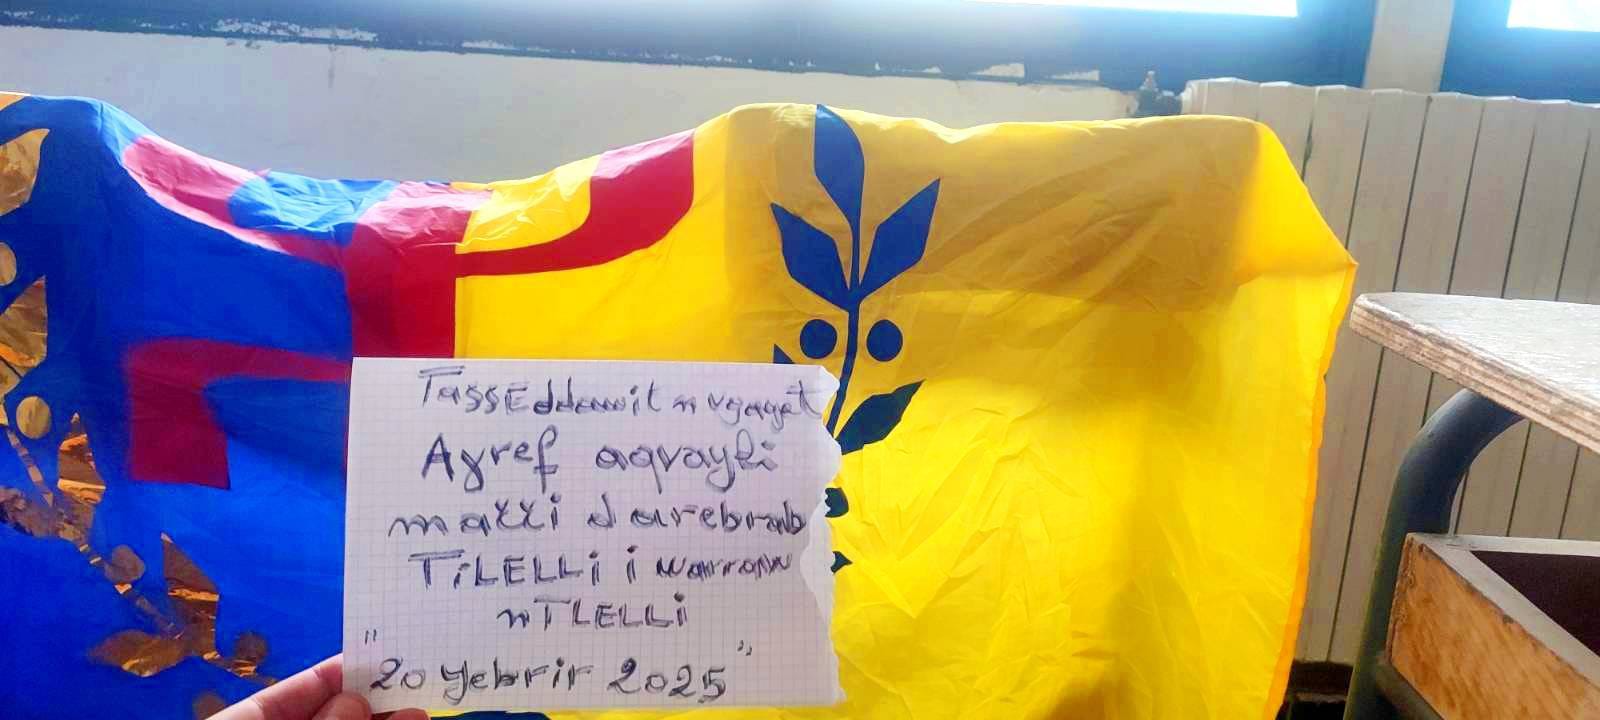 TassEddawit n vgayet
Aɣref aqvayli
mačči d arebrab
TiLELLi i warraw
n TLELLi
"20 yebrir 2025"